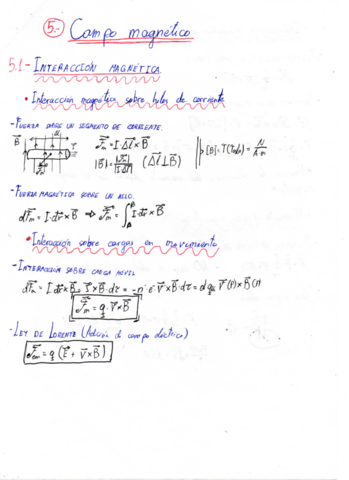 5.- Campo magnético
5.1.- INTERACCIÓN MAGNÉTICA
• Interacción magnética sobre hilos de corriente
- FUERZA SOBRE UN SEGMENTO DE CORRIENTE.
B⃗ I F⃗m = I·Δl⃗ × B⃗
|B⃗| = |F⃗m| / |I·Δl⃗| (Δl⃗ ⊥ B⃗) [B] = T (Tesla) = N / A·m
- FUERZA MAGNÉTICA SOBRE UN HILO.
dF⃗m = I·dr⃗ × B⃗ ⇒ F⃗m = ∫ I·dr⃗ × B⃗
• Interacción sobre cargas en movimiento
- INTERACCIÓN SOBRE CARGA MÓVIL
dF⃗m = I dr⃗ × B⃗ = J⃗ × B⃗ · dτ = -n·e·v⃗ × B⃗ dτ = dq v⃗(r) × B⃗(r)
F⃗m = q · v⃗ × B⃗
- LEY DE LORENTZ (Adición del campo eléctrico)
F⃗m = q (E⃗ + v⃗ × B⃗)